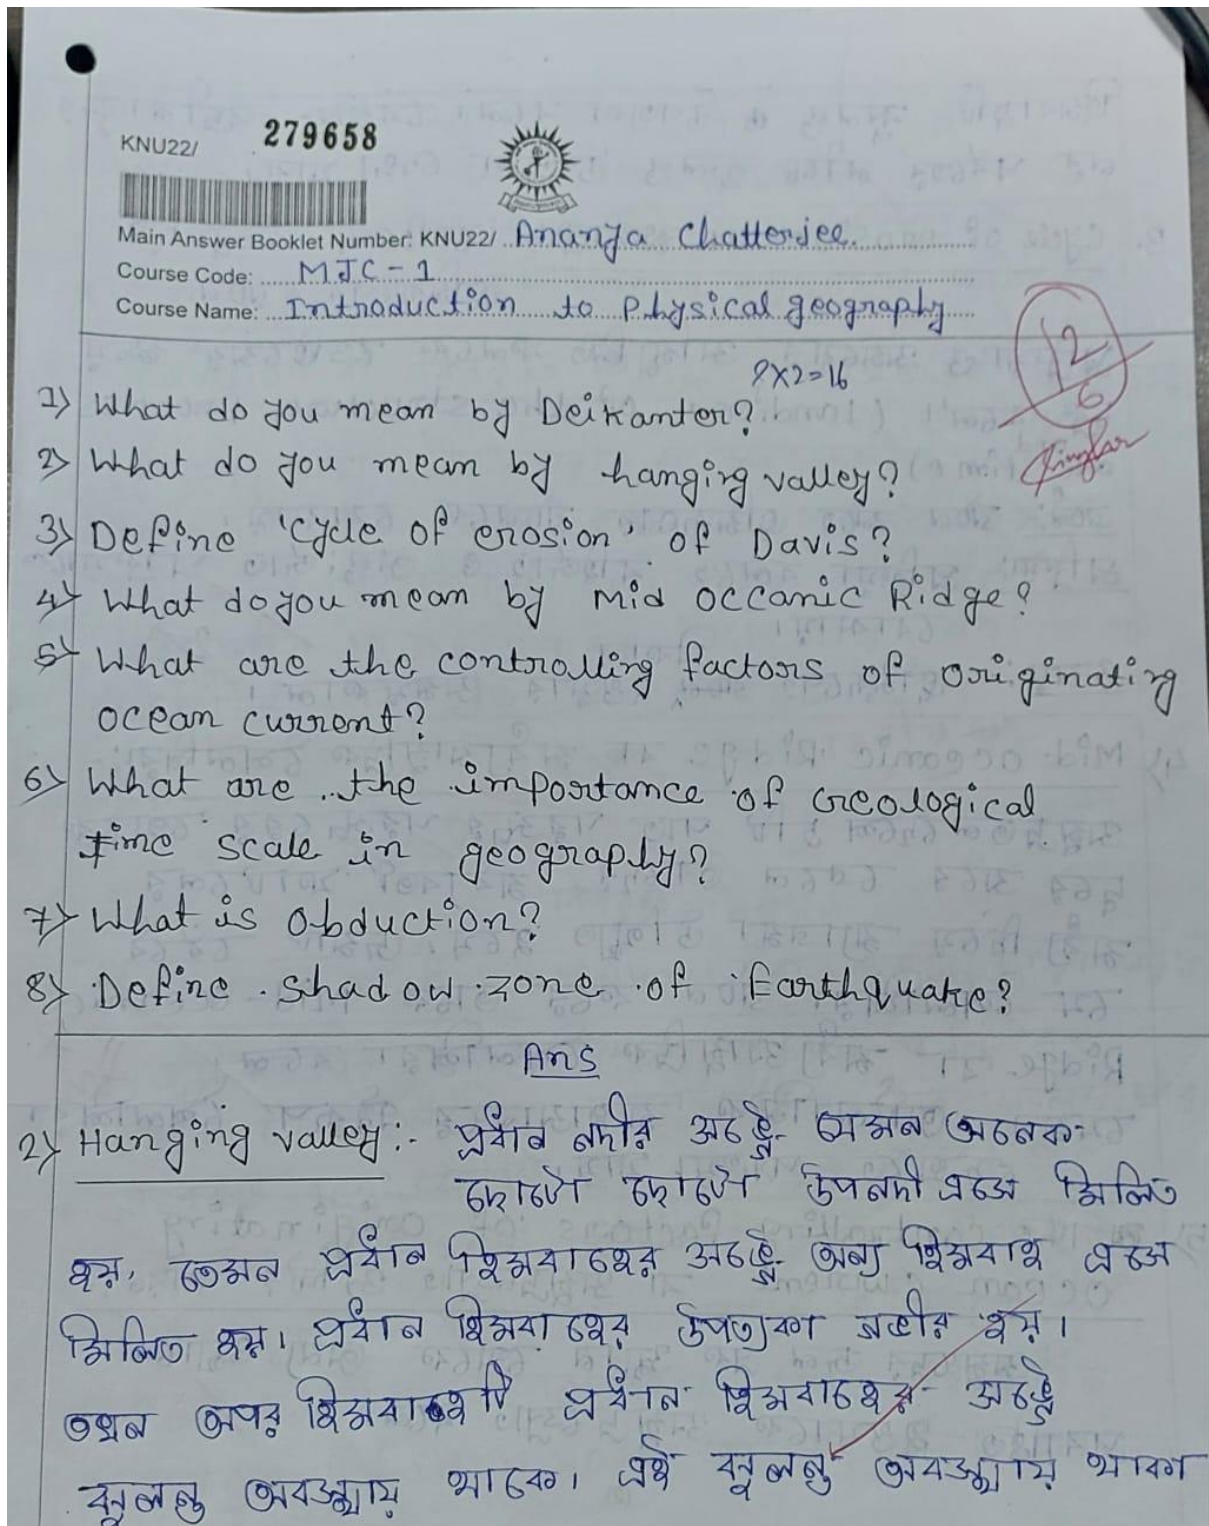 KNU22/ 279658
Main Answer Booklet Number: KNU22/ Ananya Chatterjee
Course Code: MJC-1
Course Name: Introduction to Physical geography
12
6
8x2=16
1) What do you mean by Deikanter?
2) What do you mean by hanging valley?
3) Define 'Cycle of erosion' of Davis?
4) What do you mean by Mid Occanic Ridge?
5) What are the controlling factors of originating
ocean current?
6) What are the importance of Geological
time scale in geography?
7) What is obduction?
8) Define shadow zone of Earthquake?
Ans
2) Hanging valley:- প্রধান নদীর সঙ্গে যেমন অনেক
ছোটো ছোটো উপনদী এসে মিলিত
হয়, তেমন প্রধান হিমবাহের সঙ্গে অন্য হিমবাহ এসে
মিলিত হয়। প্রধান হিমবাহের উপত্যকা গভীর হয়।
তখন অপর হিমবাহটি প্রধান হিমবাহের সঙ্গে
ঝুলন্ত অবস্থায় থাকে। এই ঝুলন্ত অবস্থায় থাকা